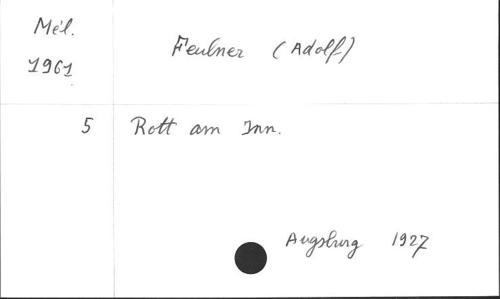 Mél. Feulner (Adolf)
1961
5 Rott am Inn.
Augsburg 1927